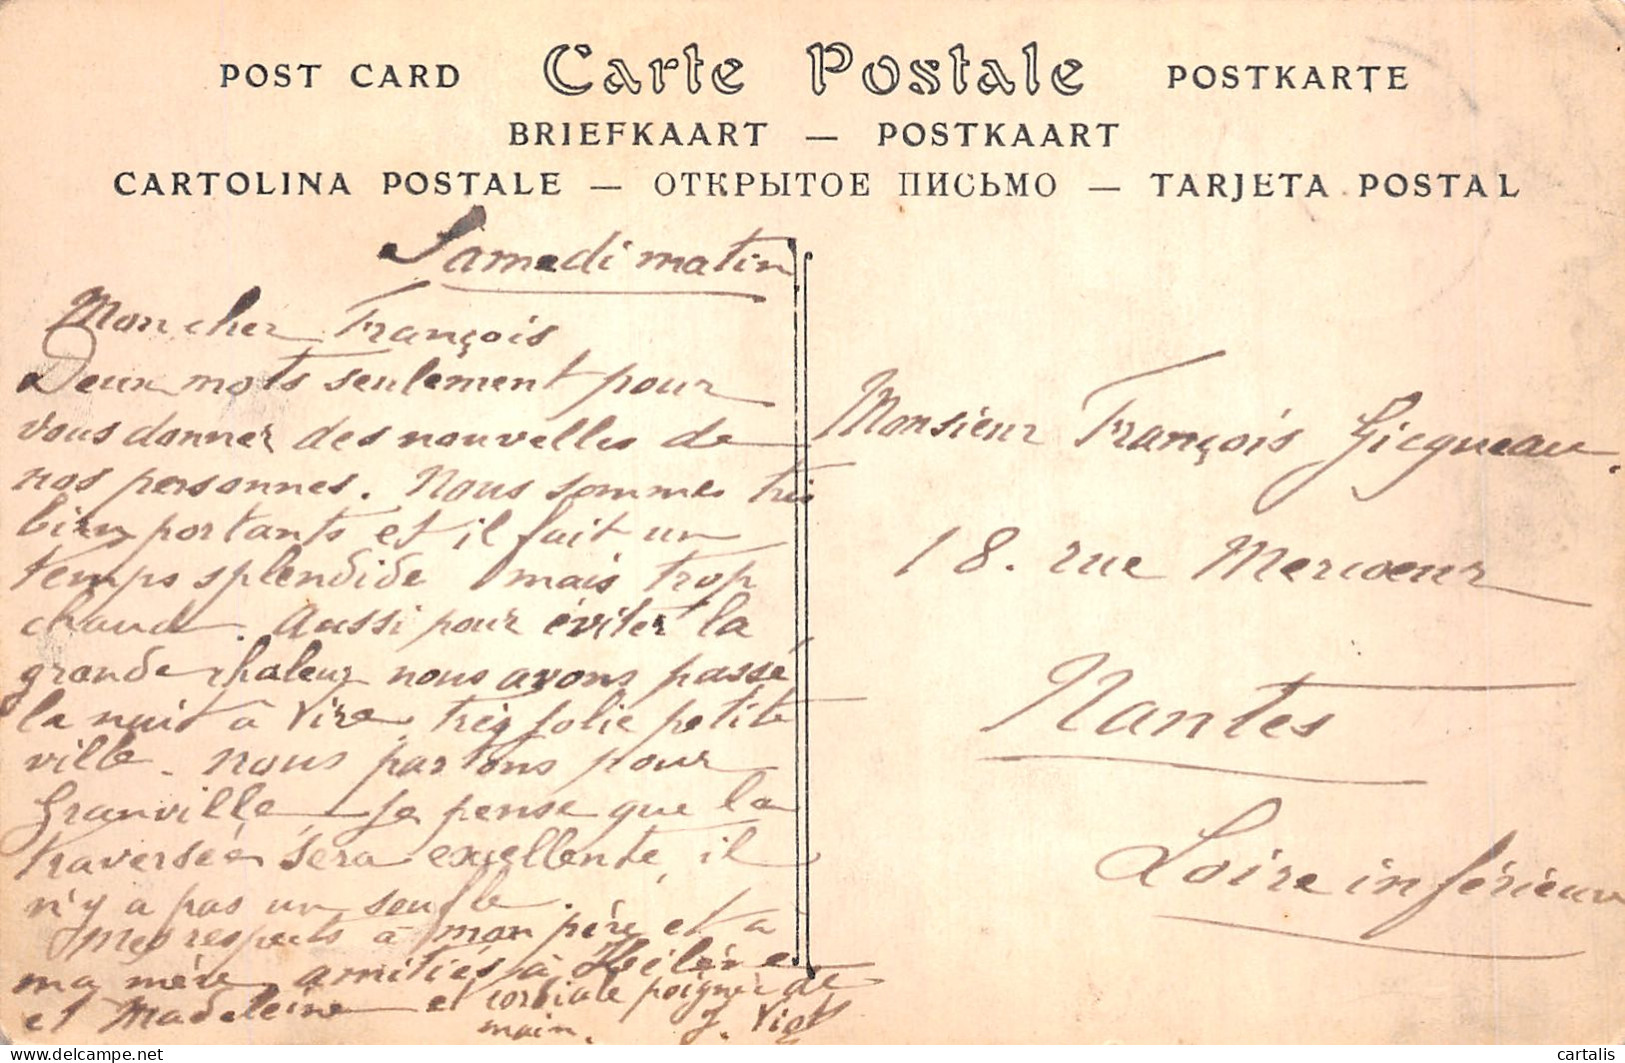 POST CARD Carte Postale POSTKARTE
BRIEFKAART — POSTKAART
CARTOLINA POSTALE — ОТКРЫТОЕ ПИСЬМО — TARJETA POSTAL
Samedi matin
Mon cher François
Deux mots seulement pour
vous donner des nouvelles de
nos personnes. Nous sommes très
bien portants et il fait un
temps splendide mais trop
chaud. Aussi pour éviter la
grande chaleur nous avons passé
la nuit à Vire, très jolie petite
ville. nous partons pour
Granville. Je pense que la
traversée sera excellente, il
n'y a pas un souffle.
Mes respects à mon père et à
ma mère, amitiés à Hélène
et Madeleine et cordiale poignée de
main. J. Viot
Monsieur François Gicqueau.
18. rue Mercoeur
Nantes
Loire inférieure
cartalis
delcampe.net